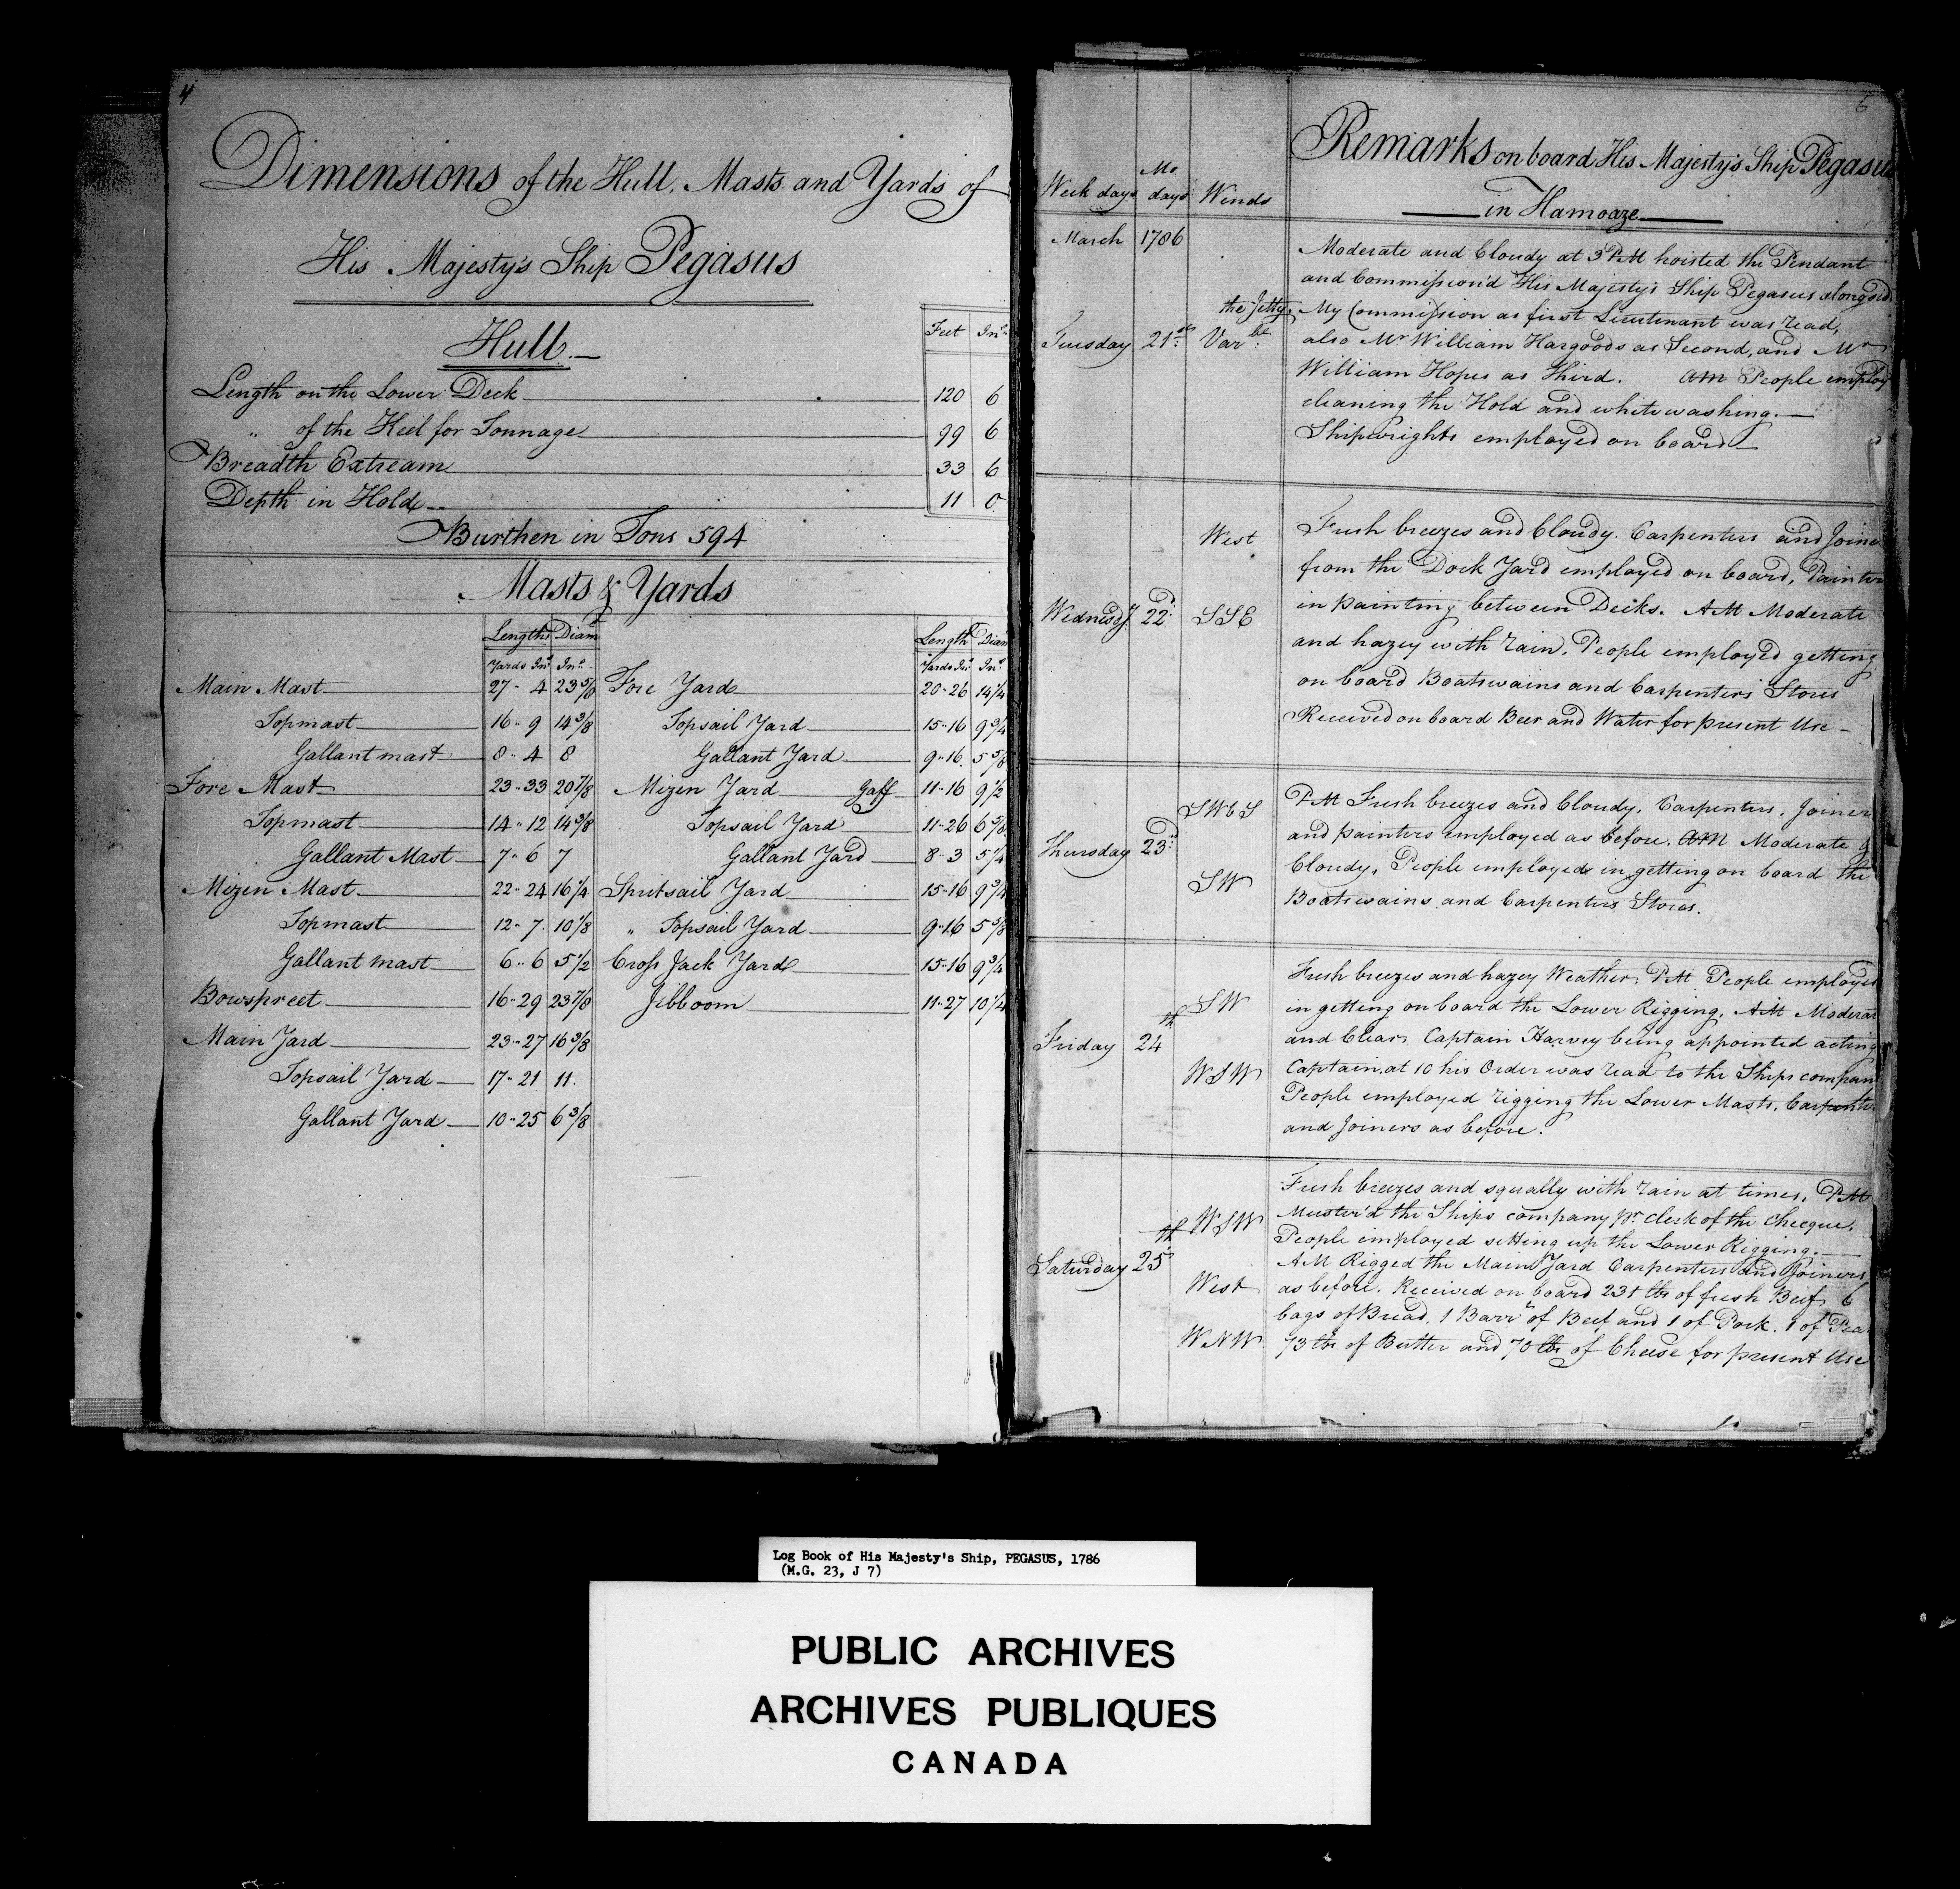 4
Dimensions of the Hull, Masts and Yards of
His Majesty's Ship Pegasus
Hull.
Feet Ins
Length on the Lower Deck 120 6
" of the Keel for Tonnage 99 6
Breadth Extream 33 6
Depth in Hold 11 0
Burthen in Tons 594
Masts & Yards
Lengths Diamr Length Diam
Yards Ins Ins Yards Ins Ins
Main Mast 27 .. 4 23 5/8 Fore Yard 20 .. 26 14 1/4
Topmast 16 .. 9 14 3/8 Topsail Yard 15 .. 16 9 3/4
Gallant mast 8 .. 4 8 Gallant Yard 9 .. 16 5 5/8
Fore Mast 23 .. 33 20 7/8 Mizen Yard Gaff 11 .. 16 9 1/2
Topmast 14 .. 12 14 3/8 Topsail Yard 11 .. 26 6 5/8
Gallant Mast 7 .. 6 7 Gallant Yard 8 .. 3 5 1/4
Mizen Mast 22 .. 24 16 1/4 Spritsail Yard 15 .. 16 9 3/4
Topmast 12 .. 7 10 1/8 " Topsail Yard 9 .. 16 5 5/8
Gallant mast 6 .. 6 5 1/2 Cross Jack Yard 15 .. 16 9 3/4
Bowspreet 16 .. 29 23 7/8 Jibboom 11 .. 27 10 1/4
Main Yard 23 .. 27 16 3/8
Topsail Yard 17 .. 21 11.
Gallant Yard 10 .. 25 6 3/8
Week days Mo. days Winds
Remarks on board His Majesty's Ship Pegasus
in Hamoaze
March 1786
Moderate and Cloudy at 3 PM hoisted the Pendant
and Commission'd His Majesty's Ship Pegasus alongsid
the Jetty, My Commission as first Lieutenant was read,
Tuesday 21st Varble also Mr William Hargoods as Second, and Mr
William Hopes as third. AM People employ
cleaning the Hold and whitewashing.
Shipwrights employed on board
West Fresh breezes and Cloudy. Carpenters and Joine
from the Dock Yard employed on board, Painter
Wednesdy 22d SSE in painting between Decks. AM Moderate
and hazey with rain. People employed getting
on board Boatswains and Carpenters Stores
Received on board Beer and Water for present Use
SWbS PM Fresh breezes and Cloudy. Carpenters, Joiner
and painters employed as before. AM Moderate &
Thursday 23d Cloudy, People employed in getting on board the
SW Boatswains and Carpenters Stores.
Fresh breezes and hazey Weather, PM People employed
SW in getting on board the Lower Rigging. AM Moderat
Friday 24th and Clear, Captain Harvey being appointed acting
WSW Captain, at 10 his Order was read to the Ships compan
People employed rigging the Lower Masts. Carpenter
and Joiners as before.
Fresh breezes and squally with rain at times. PM
WSW Muster'd the Ships company pr Clerk of the Checque.
People employed setting up the Lower Rigging.
Saturday 25th AM Rigged the Main Yard Carpenters and Joiners
West as before. Received on board 231 lbs of fresh Beef, 6
bags of Bread, 1 Barrl of Beef and 1 of Pork. 1 of Pea
WNW 73 lbs of Butter and 70 lbs of Cheese for present Use
Log Book of His Majesty's Ship, PEGASUS, 1786
(M.G. 23, J 7)
PUBLIC ARCHIVES
ARCHIVES PUBLIQUES
CANADA